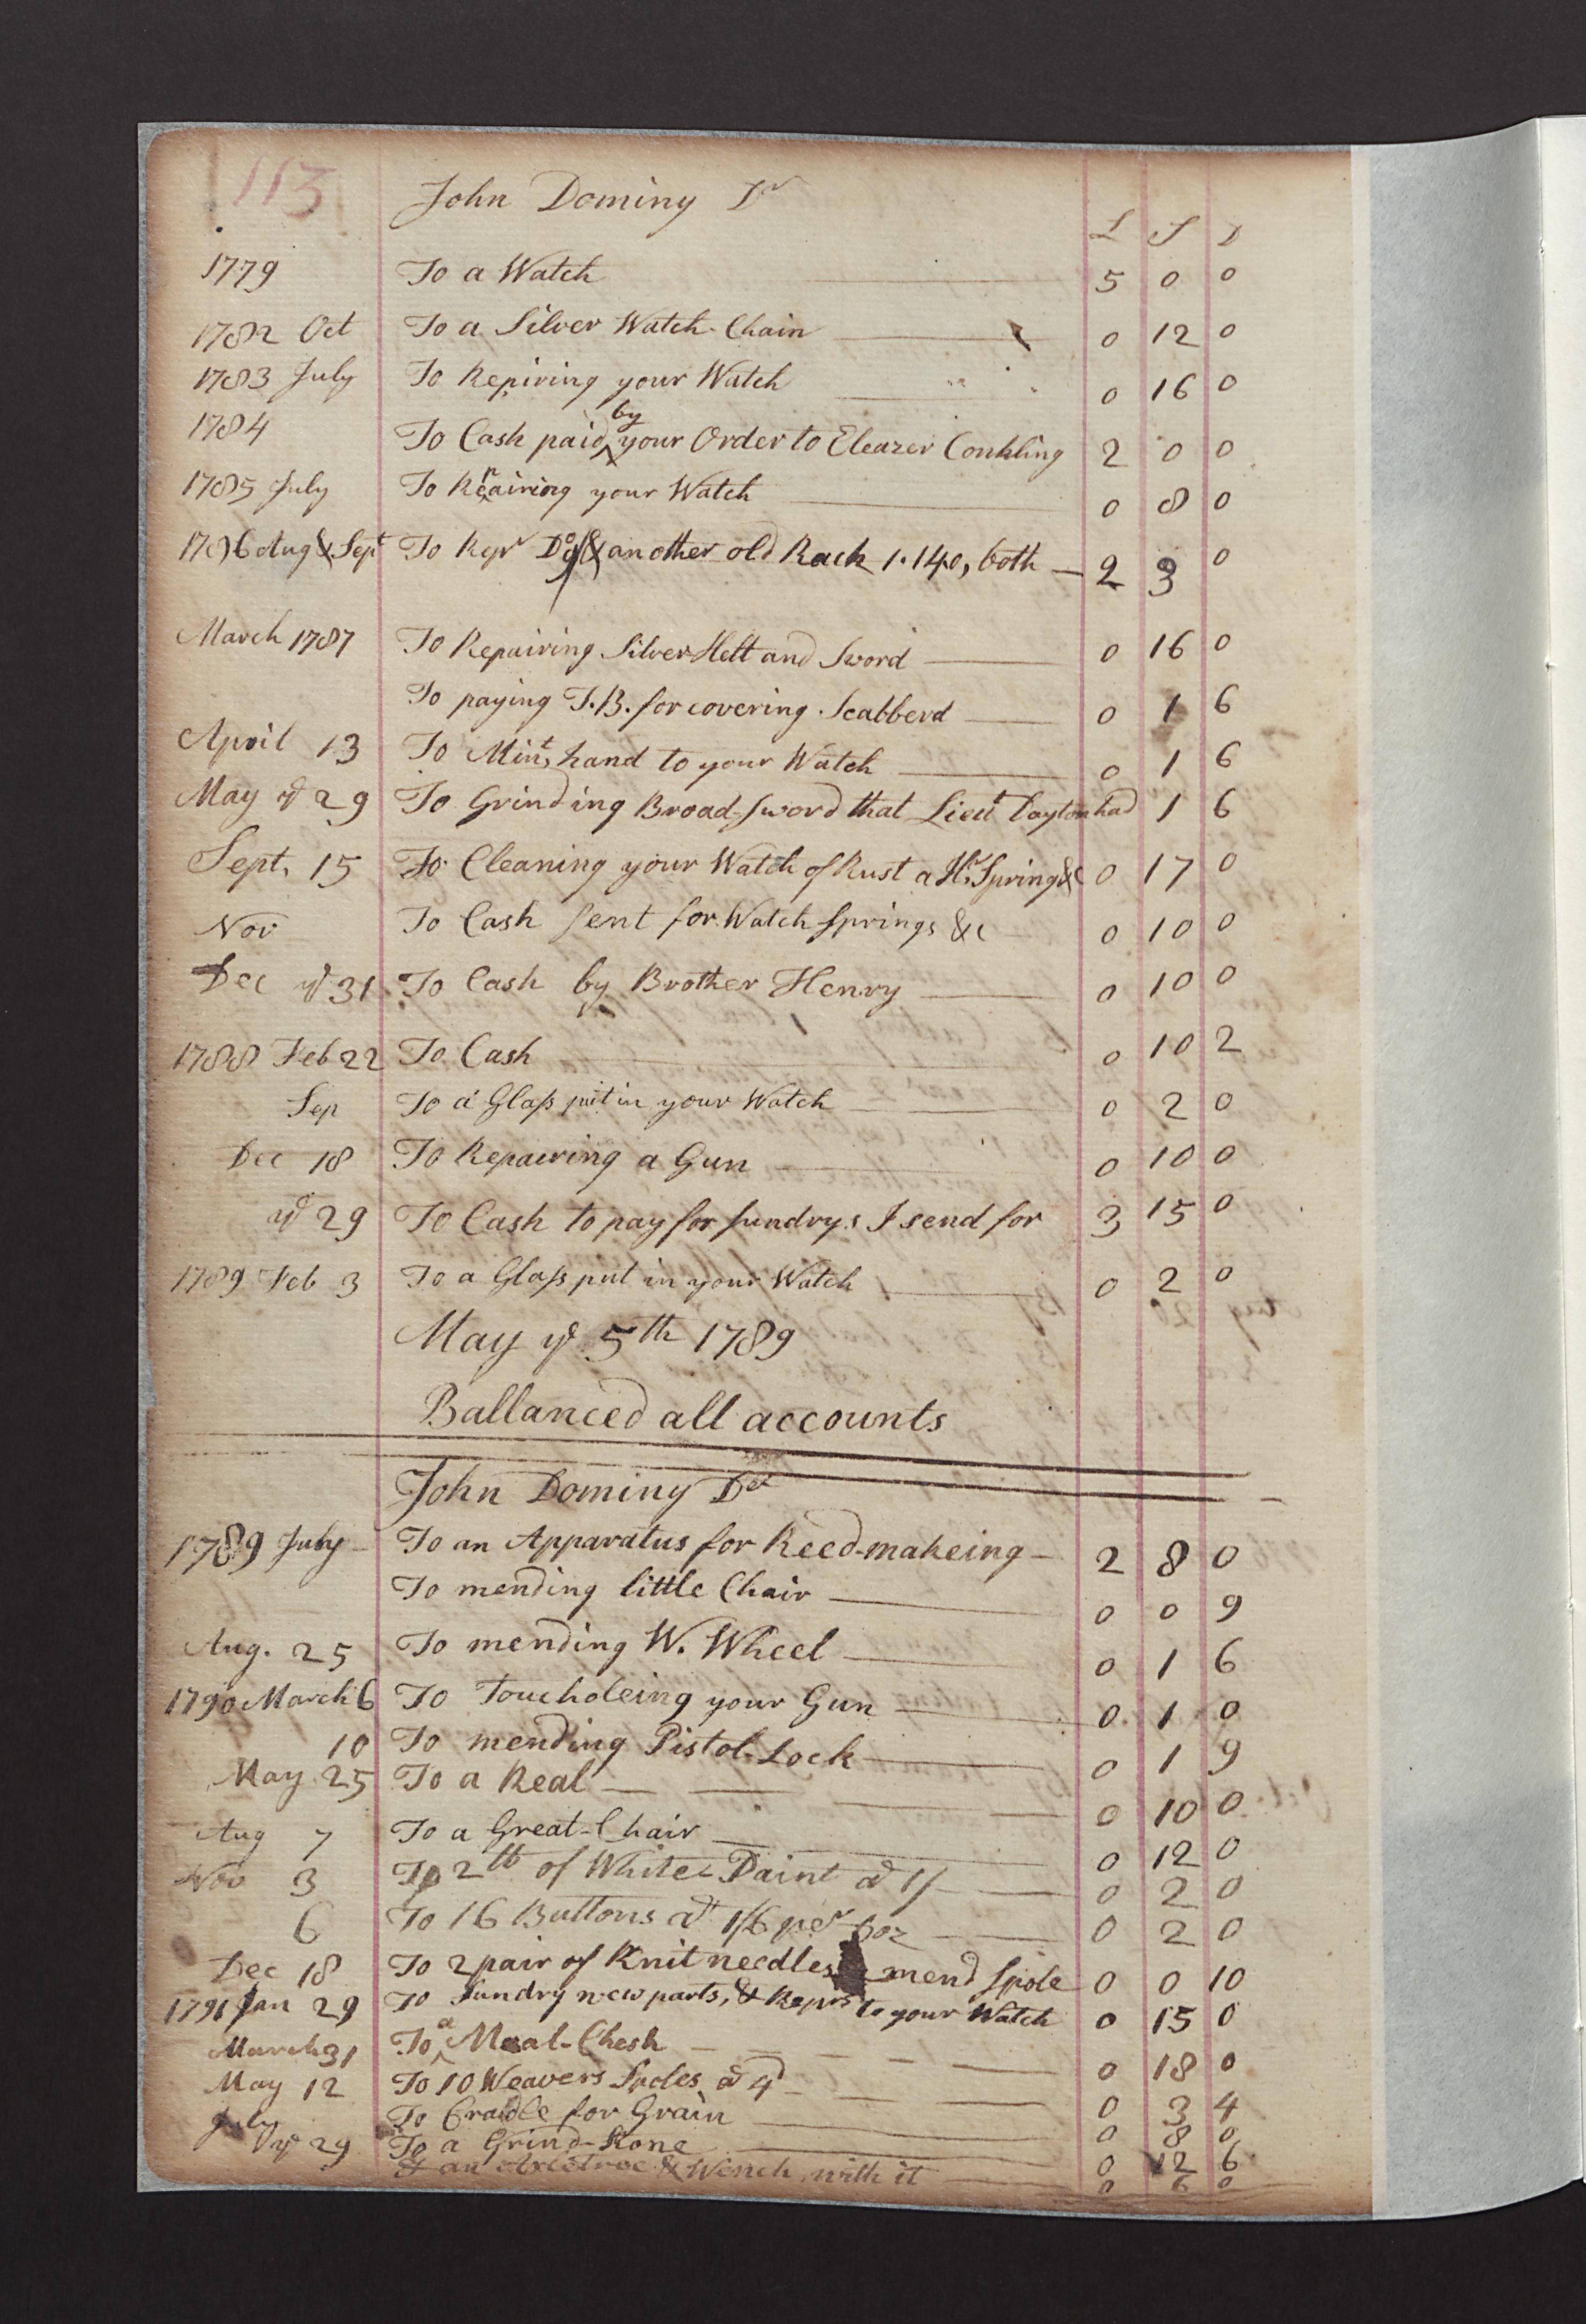 113
John Doming Dr
L S D
1779 To a Watch 5 0 0
1782 Oct To a Silver Watch-Chain 0 12 0
1783 July To Repiring your Watch 0 16 0
1784 To Cash paid by your Order to Eleazer Conkling 2 0 0
1785 July To Reairing your Watch 0 8 0
1786 Aug & Sept To Repr Do & another old Rack 1.14.0, both 2 3 0
March 1787 To Repairing Silver Helt and Sword 0 16 0
To paying T.B. for covering Scabberd 0 1 6
April 13 To Mints hand to your Watch 0 1 6
May ye 29 To Grinding Broad-Sword that Lieut Dayton had 1 6
Sept. 15 To Cleaning your Watch of Rust a Hr Spring &c 0 17 0
Nov To Cash sent for Watch Springs &c 0 10 0
Dec ye 31 To Cash by Brother Henry 0 10 0
1788 Feb 22 To Cash 0 10 2
Sep To a Glass put in your Watch 0 2 0
Dec 18 To Repairing a Gun 0 10 0
ye 29 To Cash to pay for sundrys I send for 3 15 0
1789 Feb 3 To a Glass put in your Watch 0 2 0
May ye 5th 1789
Ballanced all accounts
John Dominy Dr
1789 July To an Apparatus for Reed-makeing 2 8 0
To mending little Chair 0 0 9
Aug. 25 To mending W. Wheel 0 1 6
1790 March 6 To Toucholeing your Gun 0 1 0
10 To mending Pistol-Lock 0 1 9
May 25 To a Real 0 10 0
Aug 7 To a Great-Chair 0 12 0
Nov 3 To 2 lb of White Paint at 1/ 0 2 0
6 To 16 Buttons at 1/6 per Doz 0 2 0
Dec 18 To 2 pair of Knit needles mend Spole 0 0 10
1791 Jan 29 To Sundry new parts, & Reprs to your Watch 0 15 0
March 31 To a Meal-Chesh 0 18 0
May 12 To 10 Weavers Spoles at 4d 0 3 4
July To Cradle for Grain 0 8 0
ye 29 To a Grind-Stone 0 12 6
& an Axletree & Wench with it 0 6 0